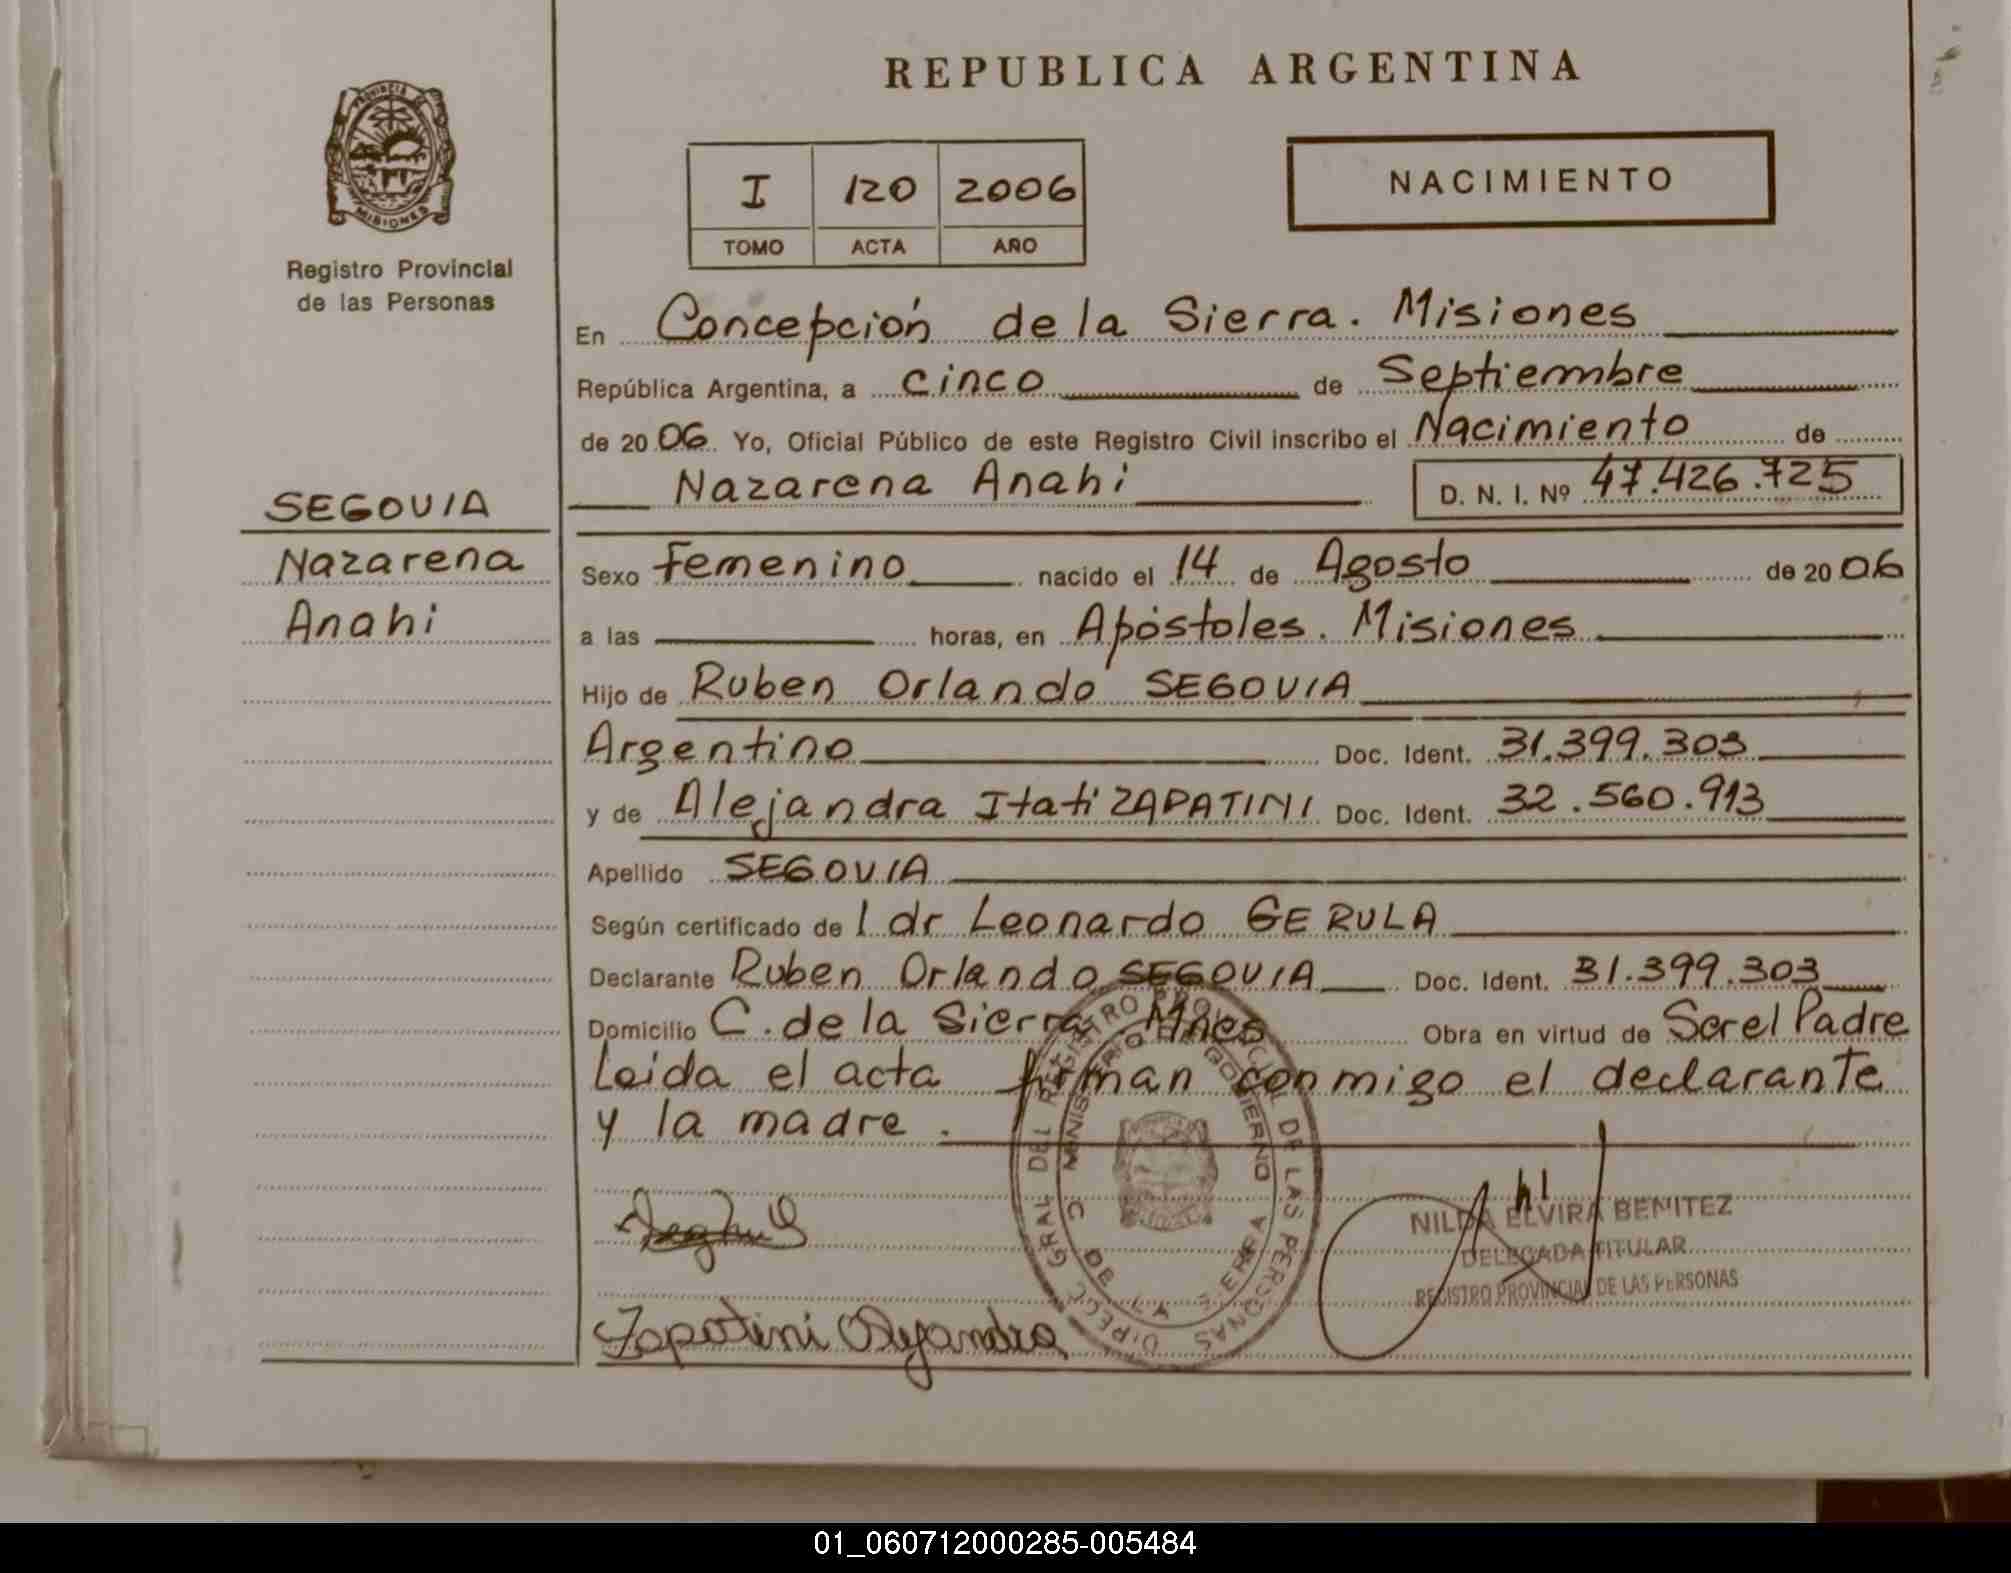 REPUBLICA ARGENTINA
PROVINCIA DE
MISIONES
Registro Provincial
de las Personas
I 120 2006
TOMO ACTA AÑO
NACIMIENTO
En Concepción de la Sierra. Misiones
República Argentina, a cinco de Septiembre
de 2006 Yo, Oficial Público de este Registro Civil inscribo el Nacimiento de
Nazarena Anahi D. N. I. Nº 47.426.725
SEGOVIA
Nazarena
Anahi
Sexo Femenino nacido el 14 de Agosto de 2006
a las horas, en Apóstoles. Misiones
Hijo de Ruben Orlando SEGOVIA
Argentino Doc. Ident. 31.399.303
y de Alejandra Itati ZAPATINI Doc. Ident. 32.560.913
Apellido SEGOVIA
Según certificado de l dr Leonardo GERULA
Declarante Ruben Orlando SEGOVIA Doc. Ident. 31.399.303
Domicilio C. de la Sierra. Mnes Obra en virtud de Ser el Padre
Leida el acta firman conmigo el declarante
y la madre.
DIRECC. GRAL DEL REGISTRO PROVINCIAL DE LAS PERSONAS
MINISTERIO DE GOBIERNO
Zapatini Alejandra
NILDA ELVIRA BENITEZ
DELEGADA TITULAR
REGISTRO PROVINCIAL DE LAS PERSONAS
01_060712000285-005484